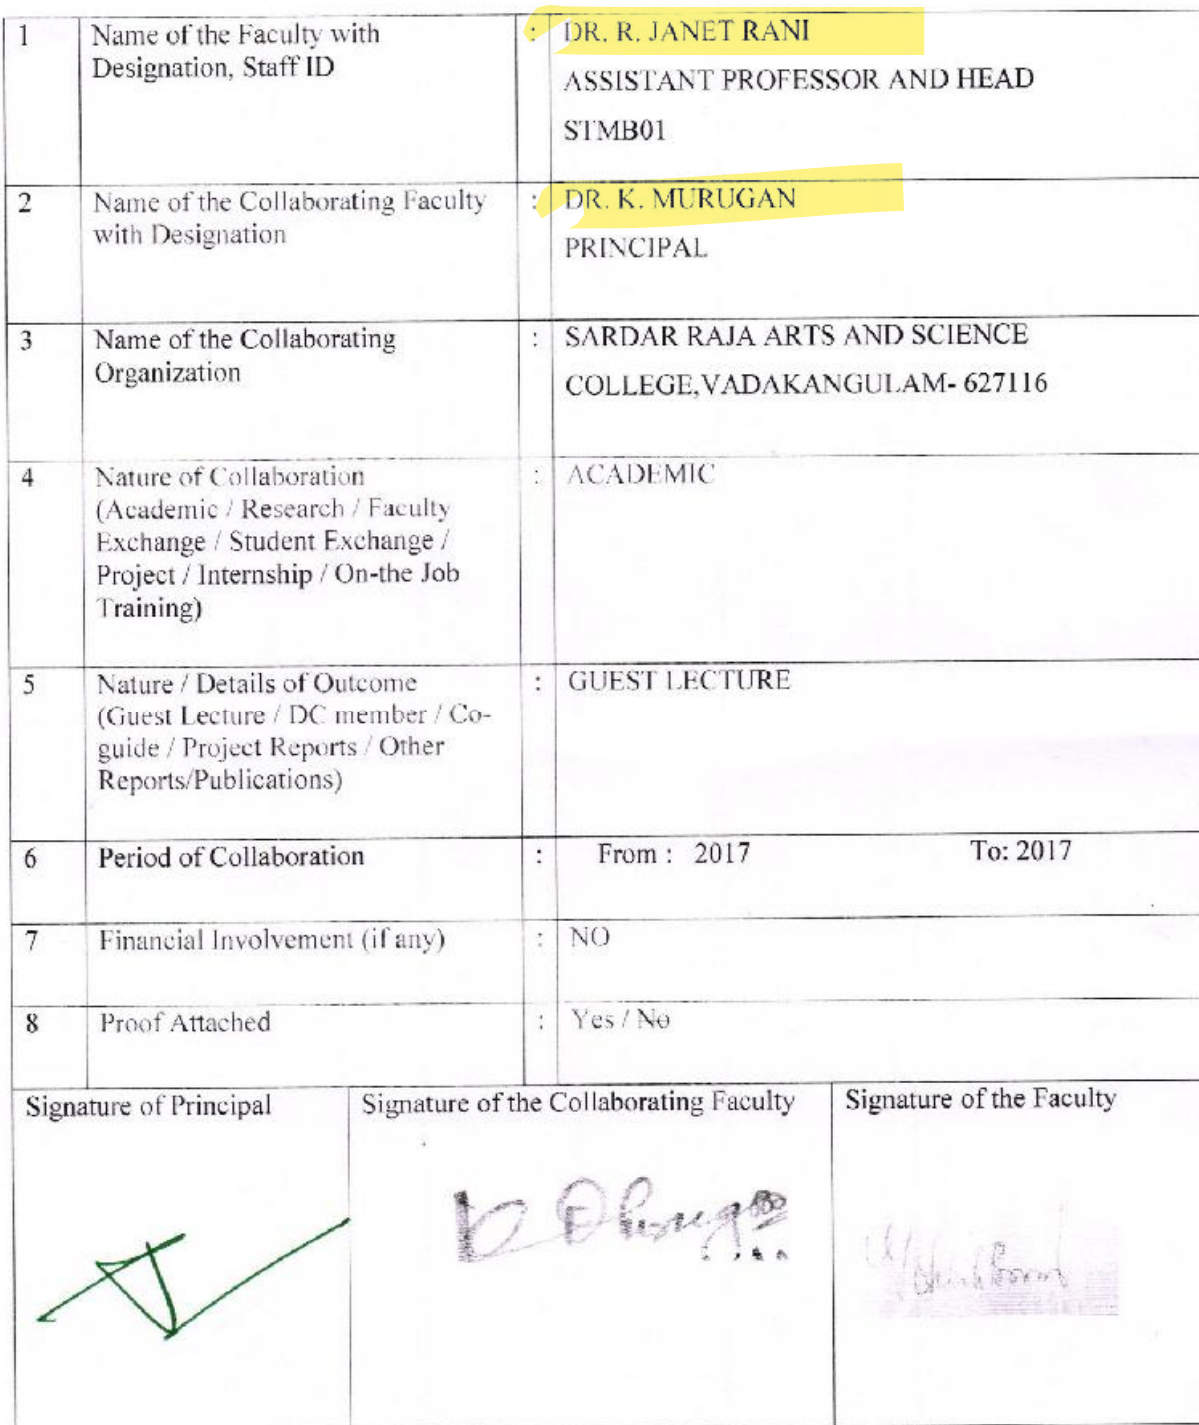 1 Name of the Faculty with : DR. R. JANET RANI
Designation, Staff ID
ASSISTANT PROFESSOR AND HEAD
STMB01
2 Name of the Collaborating Faculty : DR. K. MURUGAN
with Designation
PRINCIPAL
3 Name of the Collaborating : SARDAR RAJA ARTS AND SCIENCE
Organization
COLLEGE,VADAKANGULAM- 627116
4 Nature of Collaboration : ACADEMIC
(Academic / Research / Faculty
Exchange / Student Exchange /
Project / Internship / On-the Job
Training)
5 Nature / Details of Outcome : GUEST LECTURE
(Guest Lecture / DC member / Co-
guide / Project Reports / Other
Reports/Publications)
6 Period of Collaboration : From : 2017 To: 2017
7 Financial Involvement (if any) : NO
8 Proof Attached : Yes / No
Signature of Principal Signature of the Collaborating Faculty Signature of the Faculty